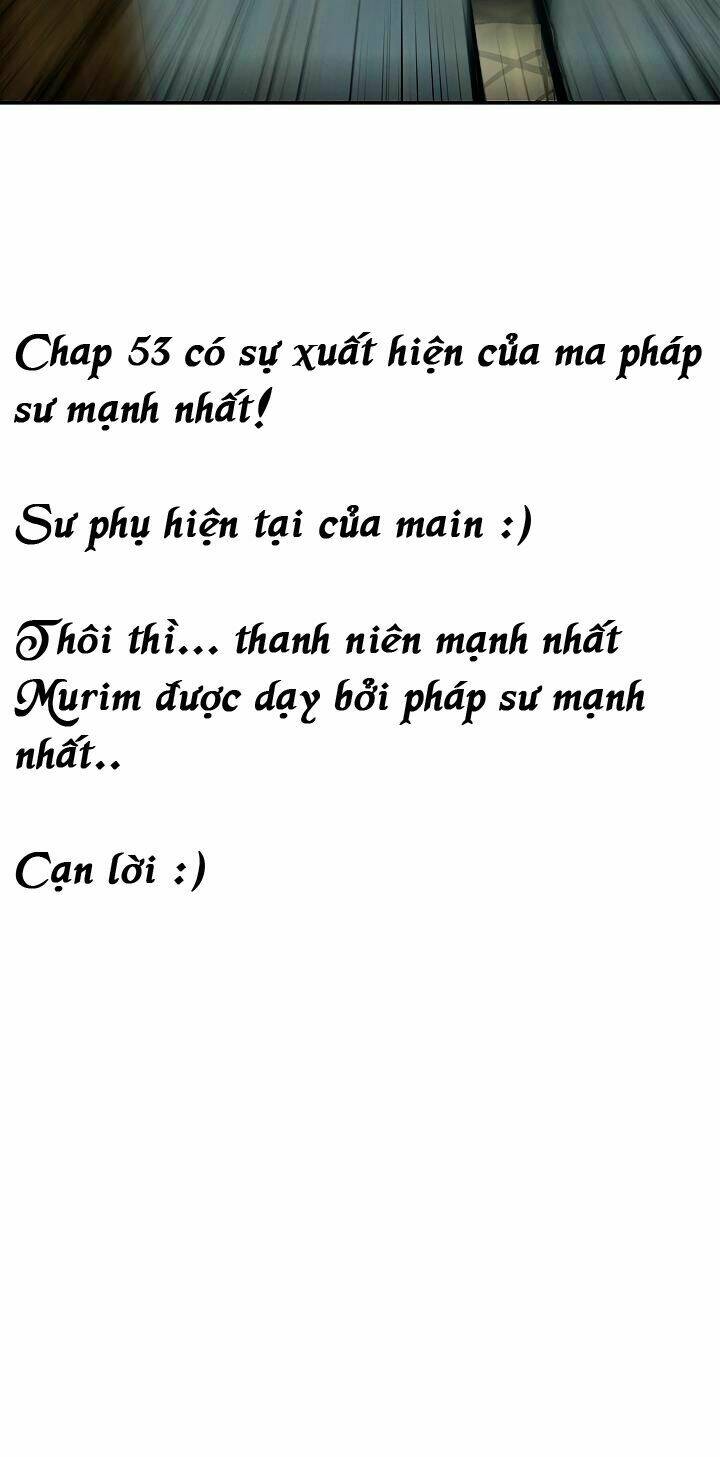 Chap 53 có sự xuất hiện của ma pháp
sư mạnh nhất!
Sư phụ hiện tại của main :)
Thôi thì... thanh niên mạnh nhất
Murim được dạy bởi pháp sư mạnh
nhất..
Cạn lời :)